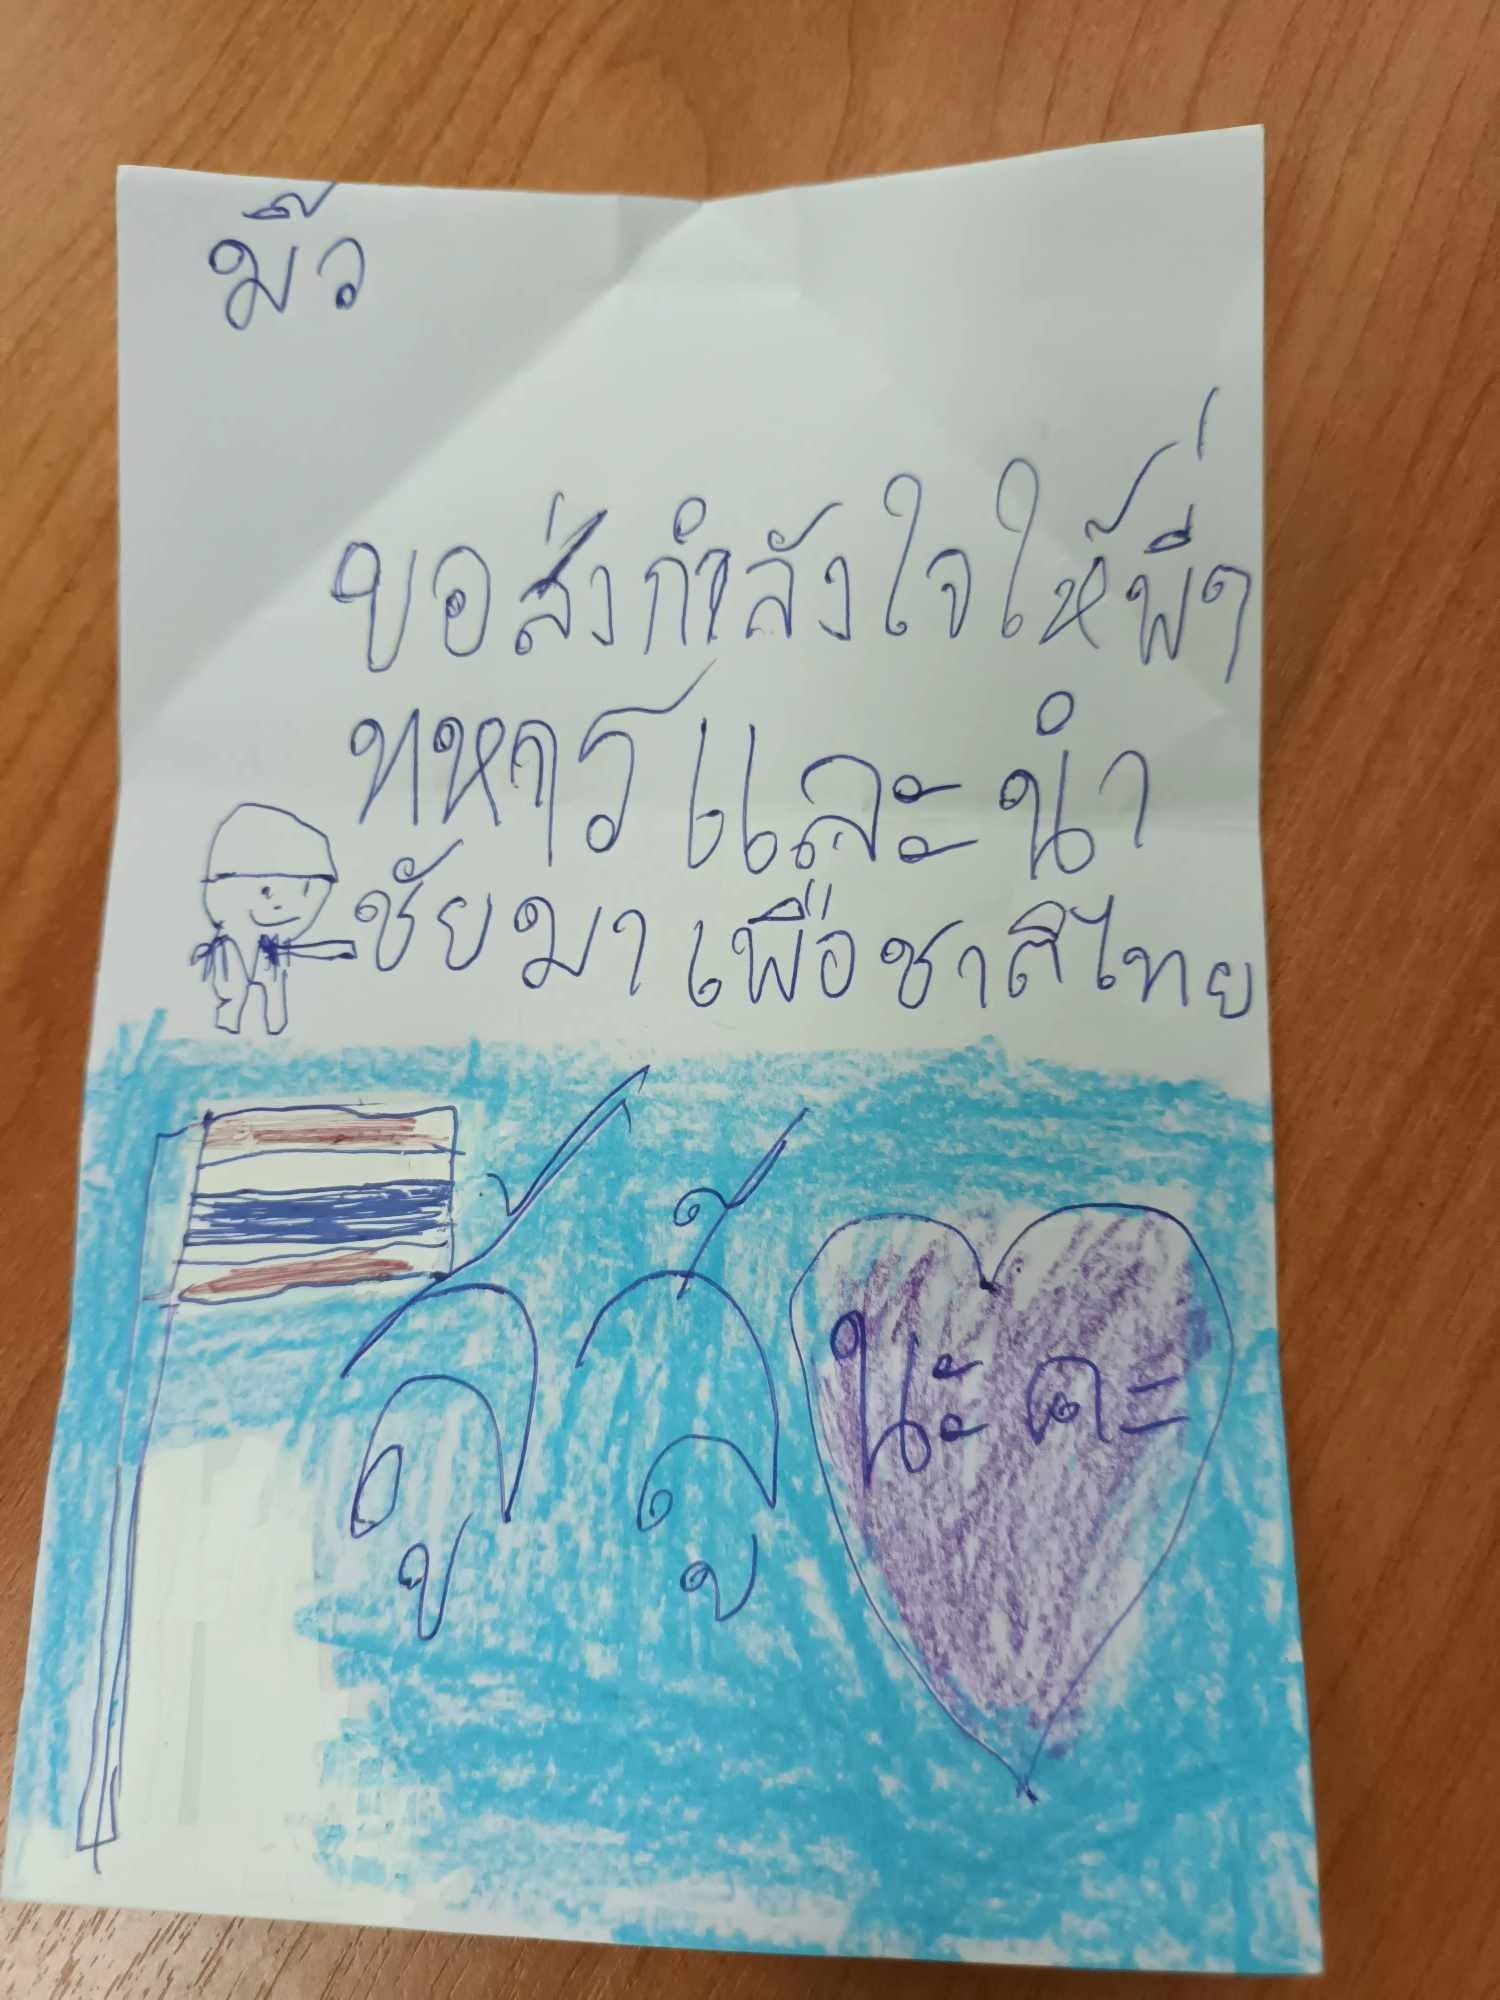 มิ้ว
ขอส่งกำลังใจให้พี่ๆ
ทหารและนำ
ชัยมาเพื่อชาติไทย
สู้สู้ นะคะ